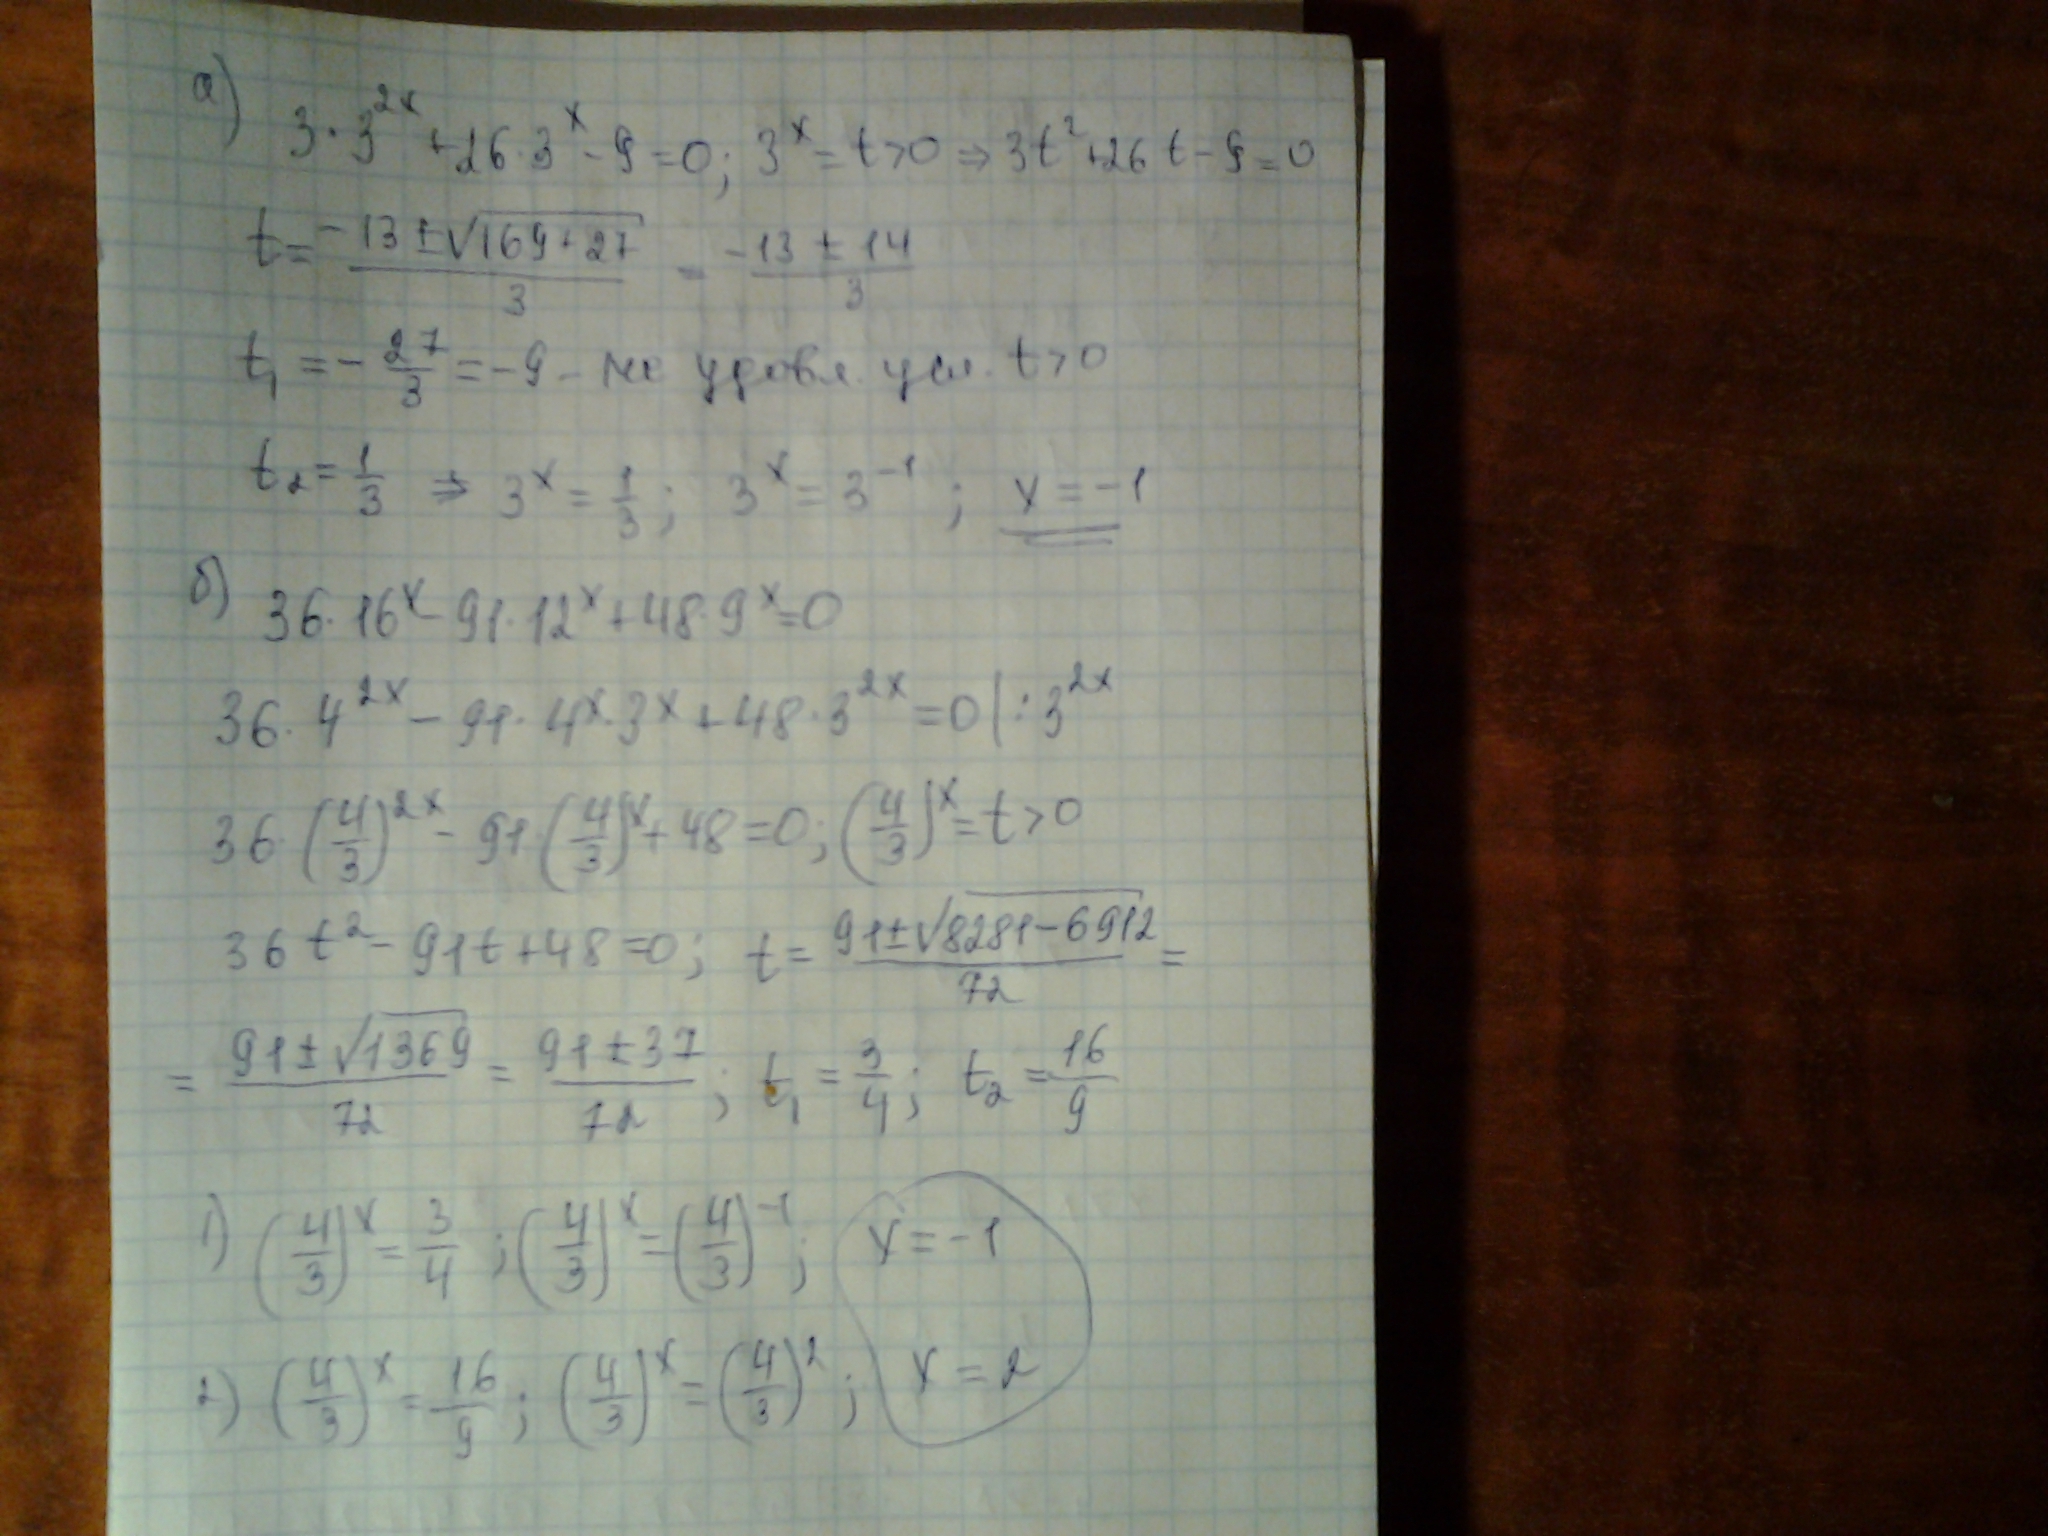 а) 3·3^{2x}+26·3^x-9=0; 3^x=t>0 ⇒ 3t²+26t-9=0
t=\frac{-13±√169+27}{3} = \frac{-13±14}{3}
t₁=-\frac{27}{3}=-9 - не удовл. усл. t>0
t₂=\frac{1}{3} ⇒ 3^x=\frac{1}{3}; 3^x=3^{-1}; x=-1
б) 36·16^x-91·12^x+48·9^x=0
36·4^{2x}-91·4^x·3^x+48·3^{2x}=0 |:3^{2x}
36·(\frac{4}{3})^{2x}-91·(\frac{4}{3})^x+48=0; (\frac{4}{3})^x=t>0
36t²-91t+48=0; t=\frac{91±√8281-6912}{72}=
=\frac{91±√1369}{72}=\frac{91±37}{72}; t₁=\frac{3}{4}; t₂=\frac{16}{9}
1) (\frac{4}{3})^x=\frac{3}{4}; (\frac{4}{3})^x=(\frac{4}{3})^{-1}; x=-1
2) (\frac{4}{3})^x=\frac{16}{9}; (\frac{4}{3})^x=(\frac{4}{3})^2; x=2